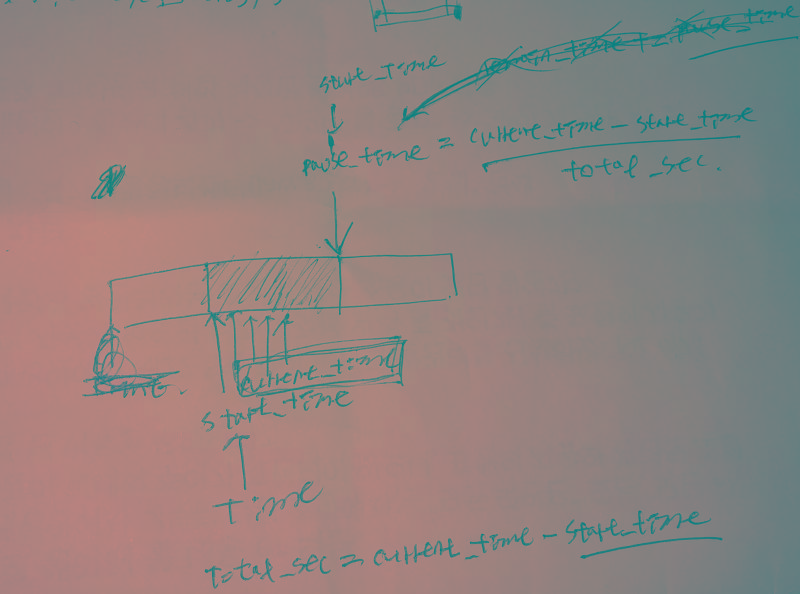 start_time
pause_time = current_time - start_time
total_sec.
current_time
start_time
Time
Total_sec = current_time - start_time